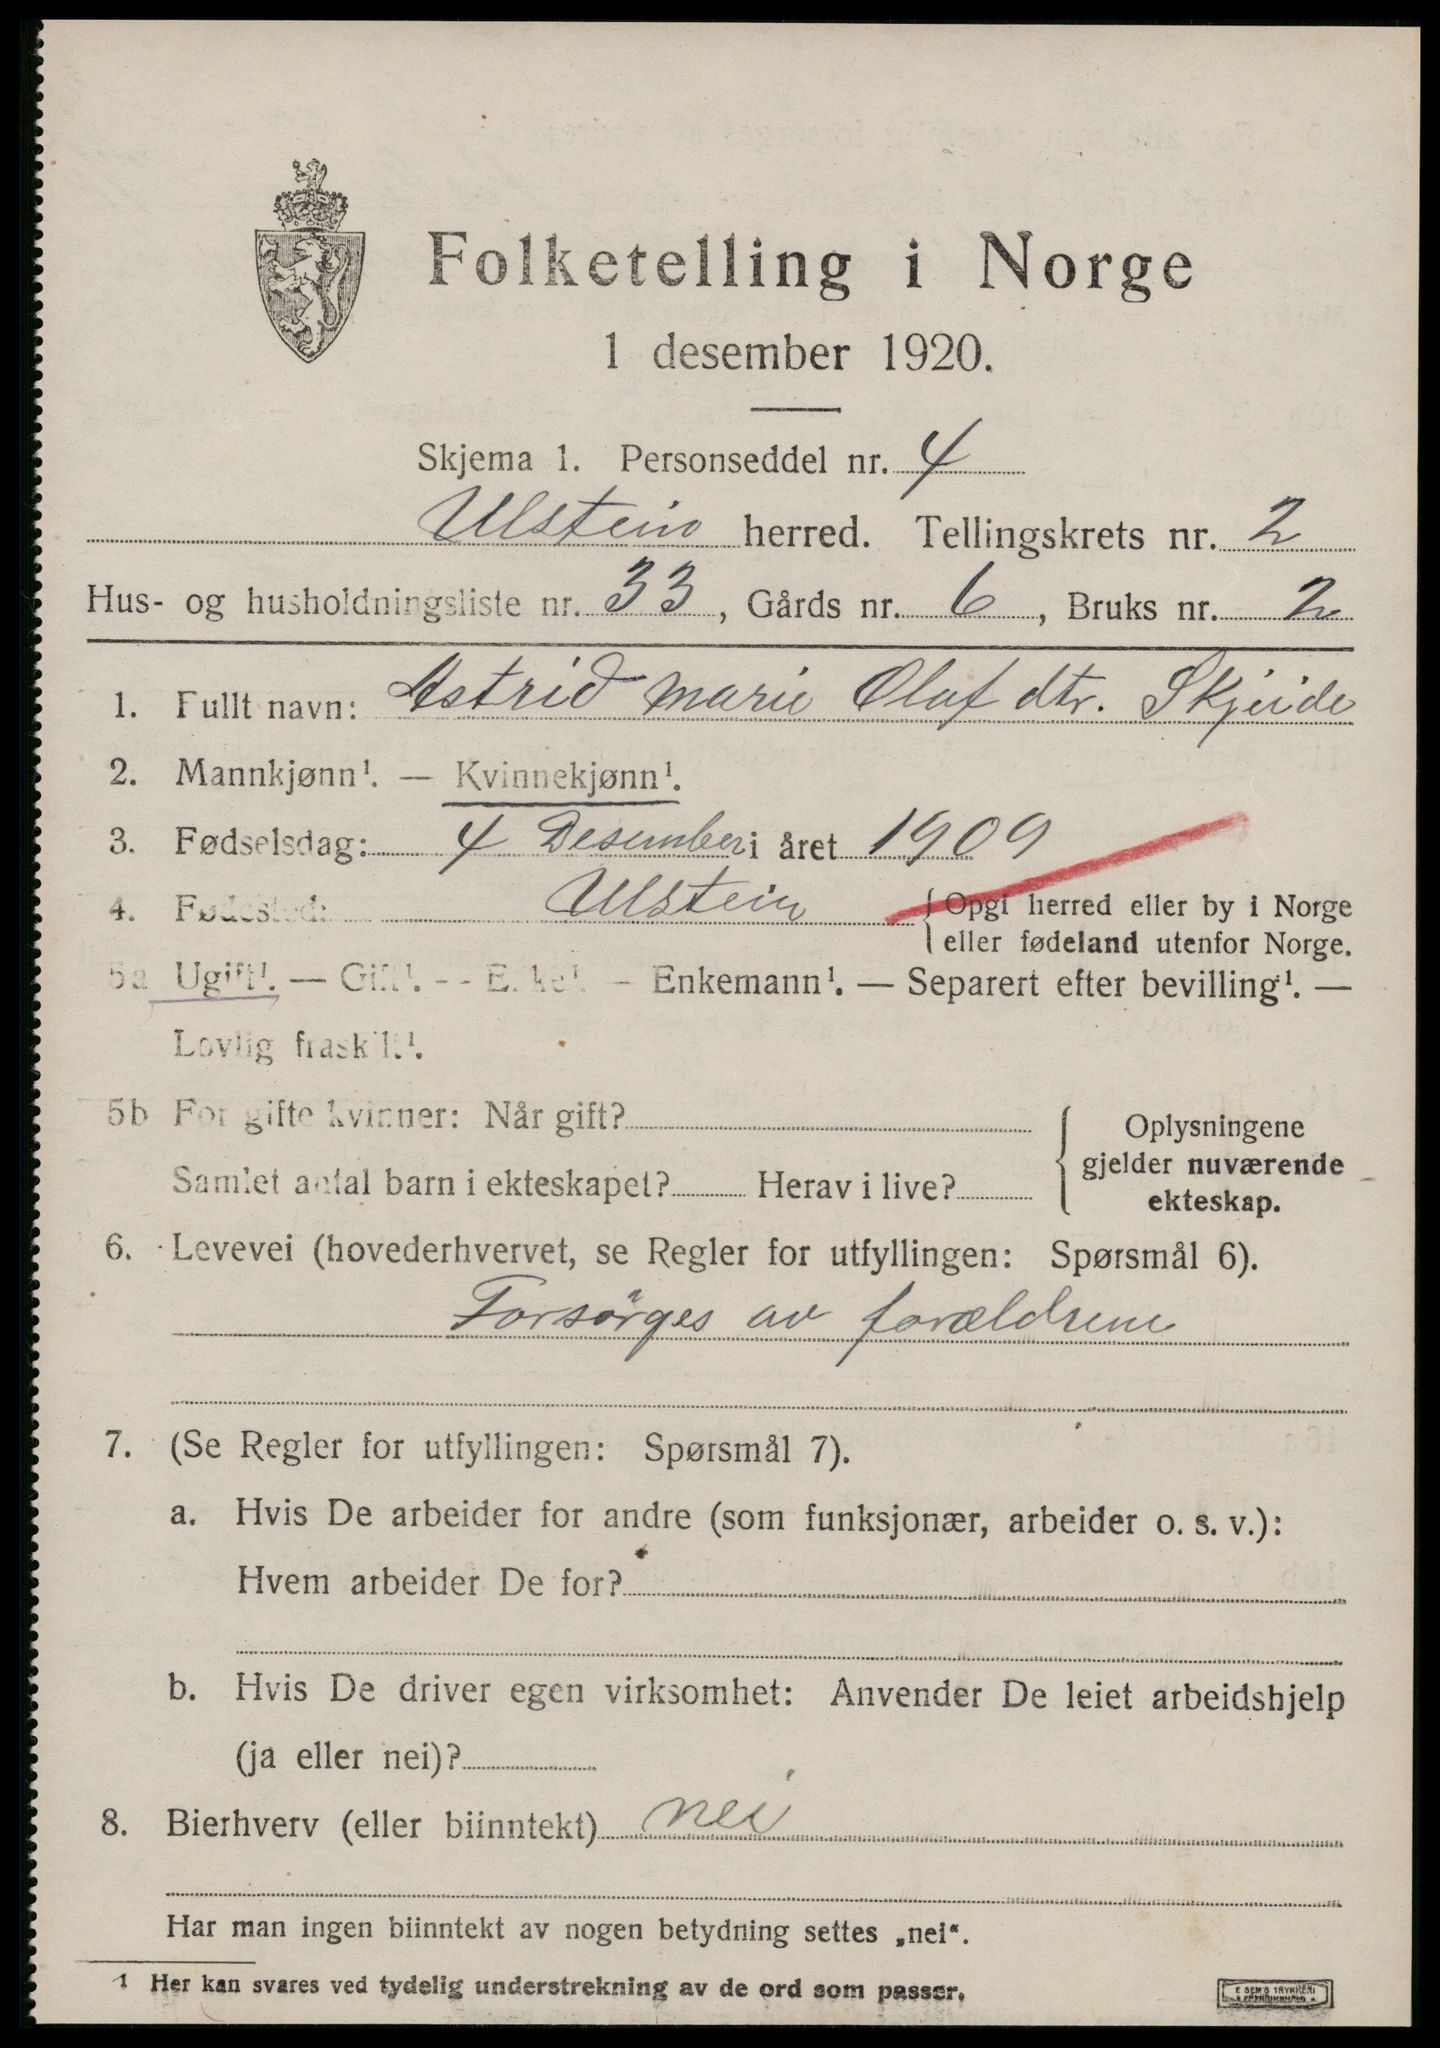 Folketelling i Norge
1 desember 1920.
Skjema 1. Personseddel nr. 4
Ulstein herred. Tellingskrets nr. 2
Hus- og husholdningsliste nr. 33, Gårds nr. 6, Bruks nr. 2
1. Fullt navn: Astrid Marie Olaf dtr. Skjeide
2. Mannkjønn¹. — Kvinnekjønn¹.
3. Fødselsdag: 4 Desember i året 1909
4. Fødested: Ulstein { Opgi herred eller by i Norge
eller fødeland utenfor Norge.
5a Ugift¹. — Gift¹. — Enke¹. — Enkemann¹. — Separert efter bevilling¹. —
Lovlig fraskilt¹.
5b For gifte kvinner: Når gift?
Samlet antal barn i ekteskapet? Herav i live?
{ Oplysningene
gjelder nuværende
ekteskap.
6. Levevei (hovederhvervet, se Regler for utfyllingen: Spørsmål 6).
Forsörges av forældrene
7. (Se Regler for utfyllingen: Spørsmål 7).
a. Hvis De arbeider for andre (som funksjonær, arbeider o. s. v.):
Hvem arbeider De for?
b. Hvis De driver egen virksomhet: Anvender De leiet arbeidshjelp
(ja eller nei)?
8. Bierhverv (eller biinntekt) nei
Har man ingen biinntekt av nogen betydning settes „nei“.
¹ Her kan svares ved tydelig understrekning av de ord som passer.
E SEM'S TRYKKERI